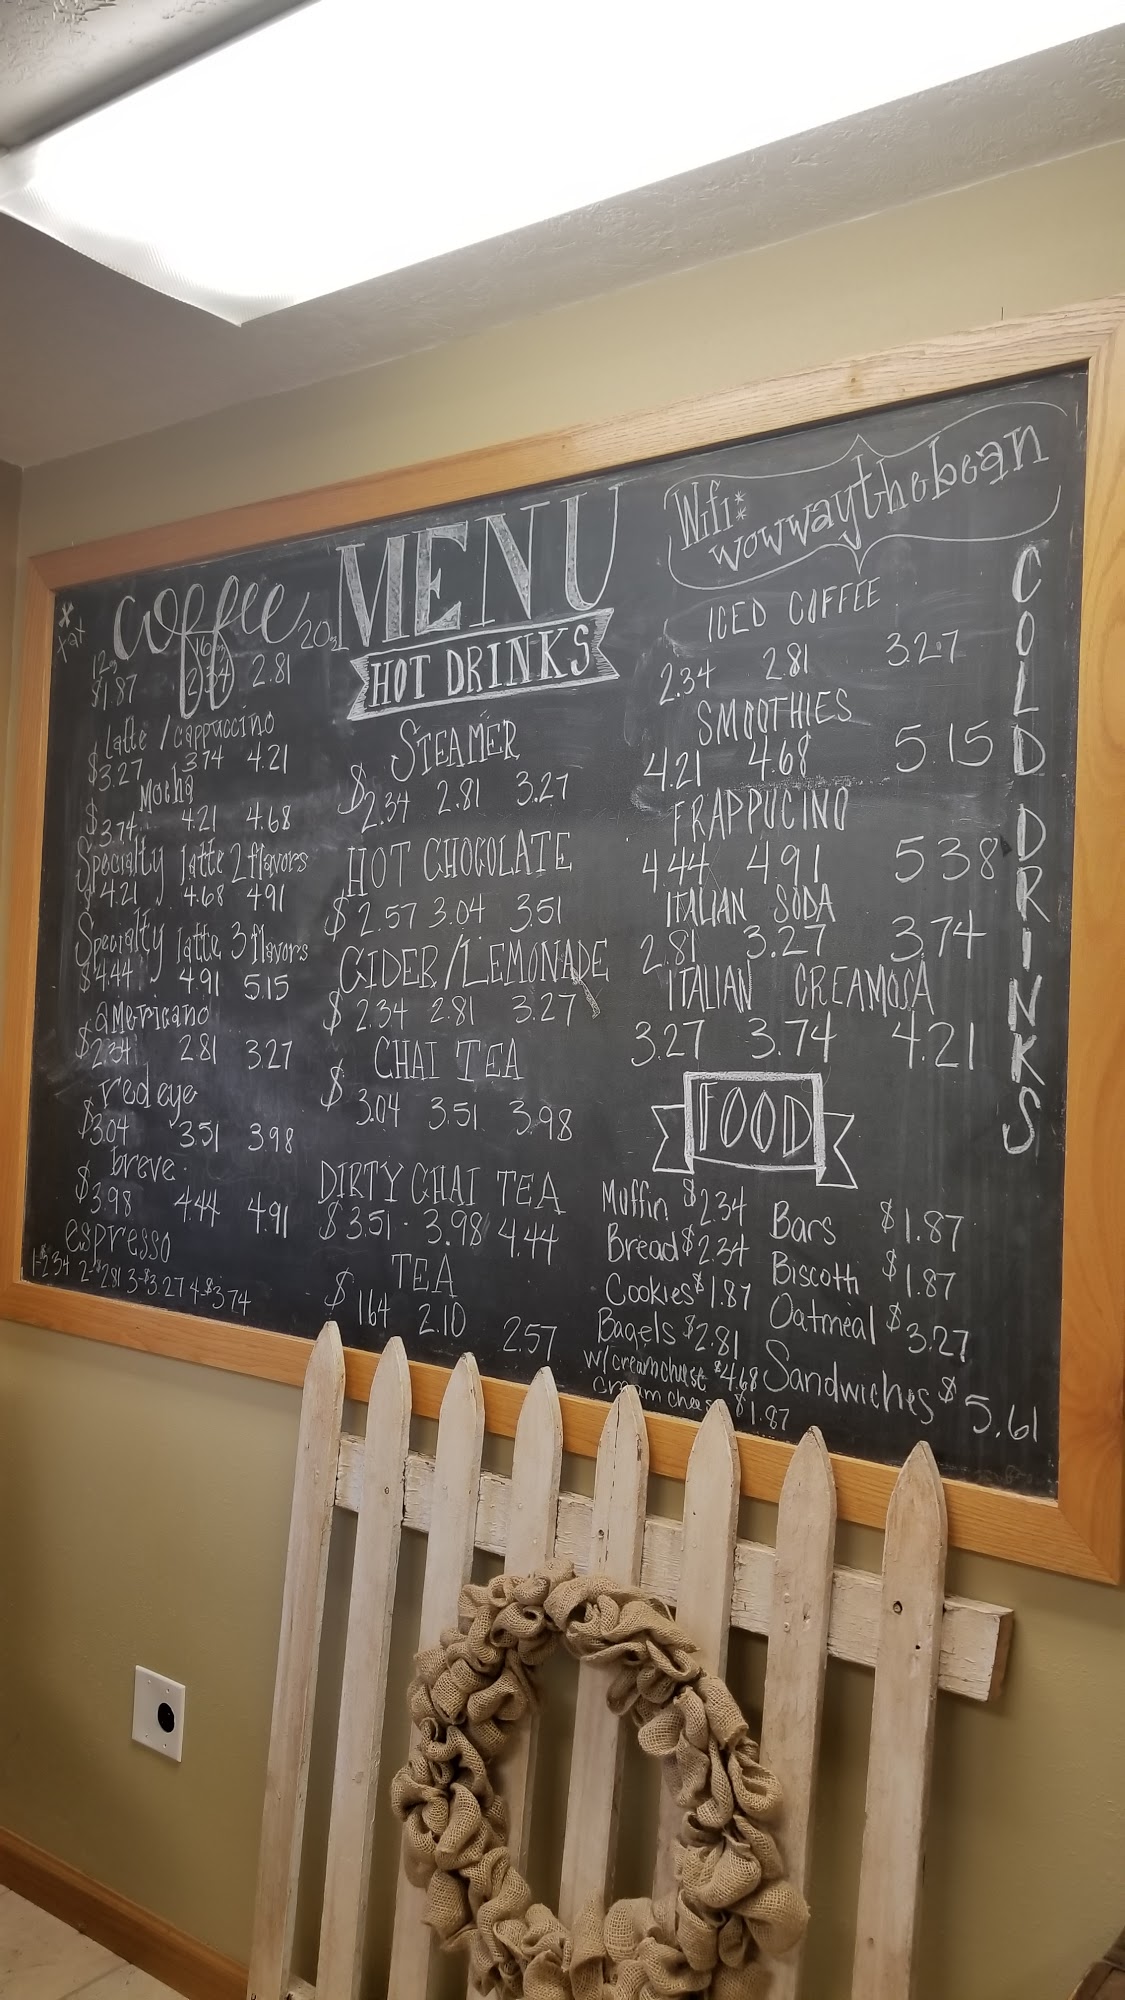 MENU
HOT DRINKS
Wifi:
wowwaythebean
* tax
coffee
12oz 16oz 20oz
$1.87 2.34 2.81
latte/cappuccino
$3.27 3.74 4.21
Mocha
$3.74 4.21 4.68
Specialty latte 2 flavors
$4.21 4.68 4.91
Specialty latte 3 flavors
$4.44 4.91 5.15
americano
$2.34 2.81 3.27
red eye
$3.04 3.51 3.98
breve
$3.98 4.44 4.91
espresso
1-$2.34 2-$2.81 3-$3.27 4-$3.74
STEAMER
$2.34 2.81 3.27
HOT CHOCOLATE
$2.57 3.04 3.51
CIDER/LEMONADE
$2.34 2.81 3.27
CHAI TEA
$3.04 3.51 3.98
DIRTY CHAI TEA
$3.51 3.98 4.44
TEA
$1.64 2.10 2.57
COLD DRINKS
ICED COFFEE
2.34 2.81 3.27
SMOOTHIES
4.21 4.68 5.15
FRAPPUCINO
4.44 4.91 5.38
ITALIAN SODA
2.81 3.27 3.74
ITALIAN CREAMOSA
3.27 3.74 4.21
FOOD
Muffin $2.34
Bread $2.34
Cookies $1.87
Bagels $2.81
w/creamcheese $4.68
cream cheese $1.87
Bars $1.87
Biscotti $1.87
Oatmeal $3.27
Sandwiches $5.61